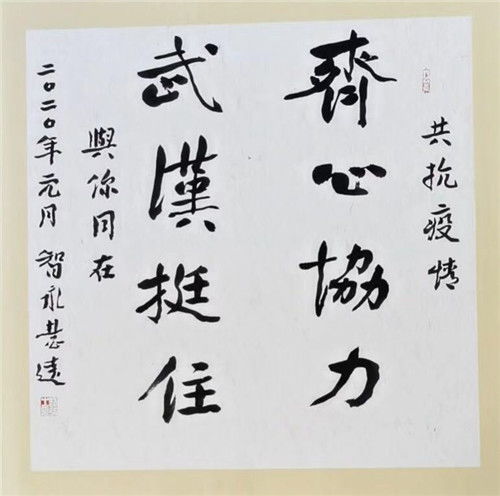 共抗疫情
齊心協力
武漢挺住
與你同在
二〇二〇年元月 智永慧遠